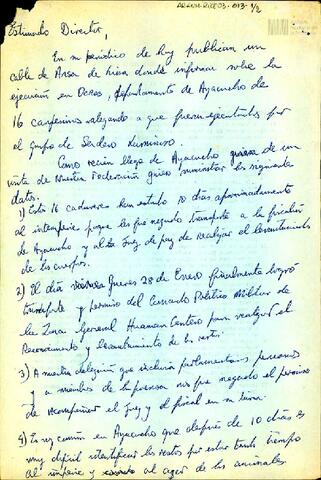 Estimado Director,
En su periódico de hoy publican un
cable de Ansa de Lima donde informan sobre la
ejecución en Ocros, departamento de Ayacucho de
16 campesinos alegando a que fueron ejecutados por
el grupo de Sendero Luminoso
Como recién llego de Ayacucho de un
visita de nuestra Federación quiero suministrar los siguientes
datos.
1) Estos 16 cadáveres han estado 10 días aproximadamente
al intemperie porque les fue negado transporte a la fiscalía
de Ayacucho y al Juez de paz de realizar el levantamiento
de los cuerpos.
2) El día Jueves 28 de Enero finalmente logró
transporte y permiso del Comando Político Militar de
la Zona General Huaman Centeno para realizar el
Reconocimiento y levantamiento de los restos.
3) A nuestra delegación que incluía parlamentarios peruanos
y a miembros de la prensa nos fue negado el permiso
de acompañar el Juez y el fiscal en su labor.
4) Es muy común en Ayacucho que después de 10 días es
muy difícil identificar los restos por estar tanto tiempo
al intemperie y al azar de los animales.